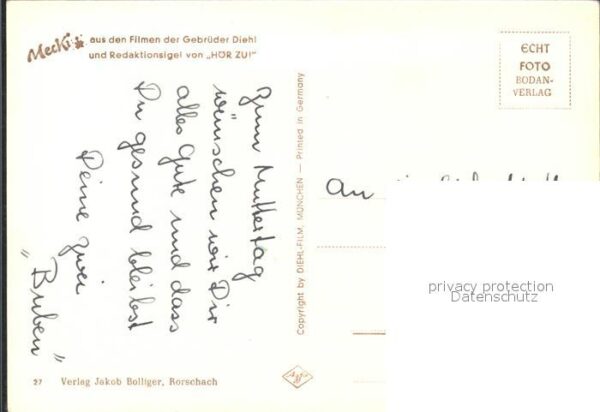 Mecki
aus den Filmen der Gebrüder Diehl
und Redaktionsigel von „HÖR ZU!"
ECHT
FOTO
BODAN-
VERLAG
Zum Muttertag
wünschen wir Dir
alles Gute und dass
Du gesund bleibst
Deine zwei
„Buben"
Copyright by DIEHL-FILM, MÜNCHEN — Printed in Germany
An
privacy protection
Datenschutz
27 Verlag Jakob Bolliger, Rorschach
Agfa